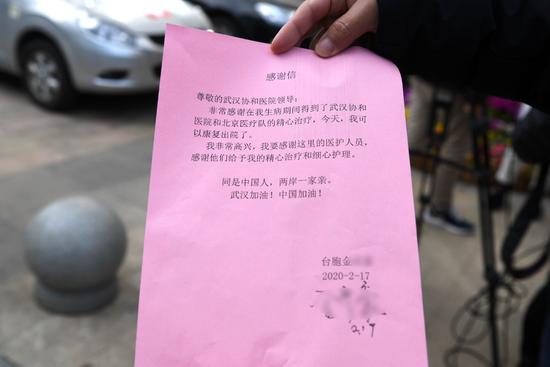 感谢信
尊敬的武汉协和医院领导：
非常感谢在我生病期间得到了武汉协和
医院和北京医疗队的精心治疗，今天，我可
以康复出院了。
我非常高兴，我要感谢这里的医护人员，
感谢他们给予我的精心治疗和细心护理。
同是中国人，两岸一家亲。
武汉加油！中国加油！
台胞金
2020-2-17
2.17